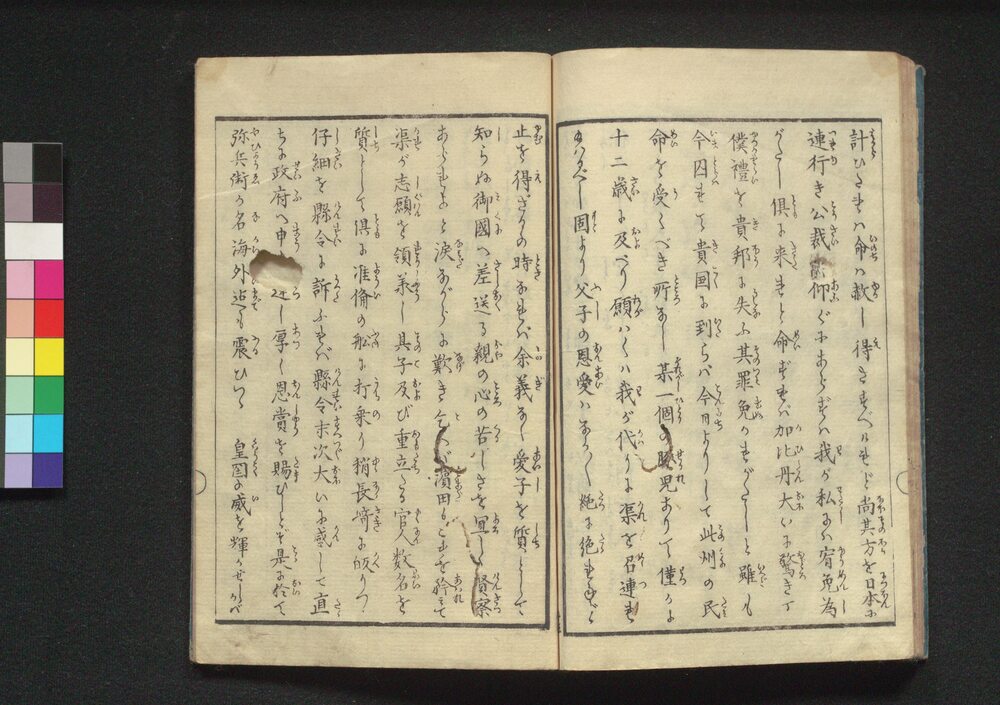 計ひたまはゞ命ハ赦し得さすべけれど尚其方を日本に
連行き公裁を仰ぐにあらずバ我が私にハ宥免為
がたし倶に来れと命ずれバ加比丹大いに驚き丁
僕禮を貴邦に失ふ其罪免かれがたしと雖も
今囚れて貴国に到らバ今日よりして此州の民
命を受くべき所なし某一個の豚児ありて僅かに
十二歳に及べり願ハくハ我が代りに渠を召連れ
給ハるべし固より父子の恩愛ハなかく絶に絶ざれども
止を得ざるの時なれバ余義なく愛子を質として
知らぬ御國へ差送る親の心の苦しさを冝しく賢察
あられよと涙ながらに歎き
濱田もこれを
渠が志願を領承し其子及び重立たる官人数名を
質として倶に准備の船に打乗り稍長崎に皈りつ
仔細を縣令に訴ふれバ縣令末次大いに感じて直
ちに政府へ申
厚く恩賞を賜ひしとぞ是に於て
弥兵衛の名海外迄も震ひつゝ 皇国の威を輝かせしかバ